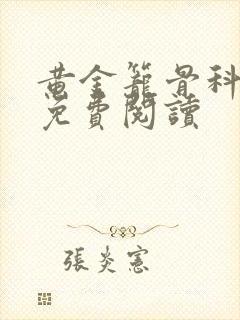 黃金籠骨科
免費閱讀
張炎憲